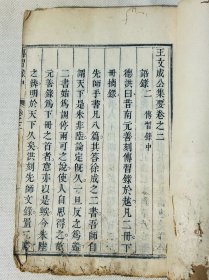 王文成公集要卷之二
語錄二 傳習錄中
德洪曰昔南元善刻傳習錄於越凡二冊下
冊摘錄
先師手書凡八篇其答徐成之二書吾師自
謂天下是朱非陸論定既久一旦反之爲難
二書姑爲調停兩可之說使人自思得之故
元善錄爲下冊之首者意亦以是歟今朱陸
之辨明於天下久矣洪刻先師文錄置二